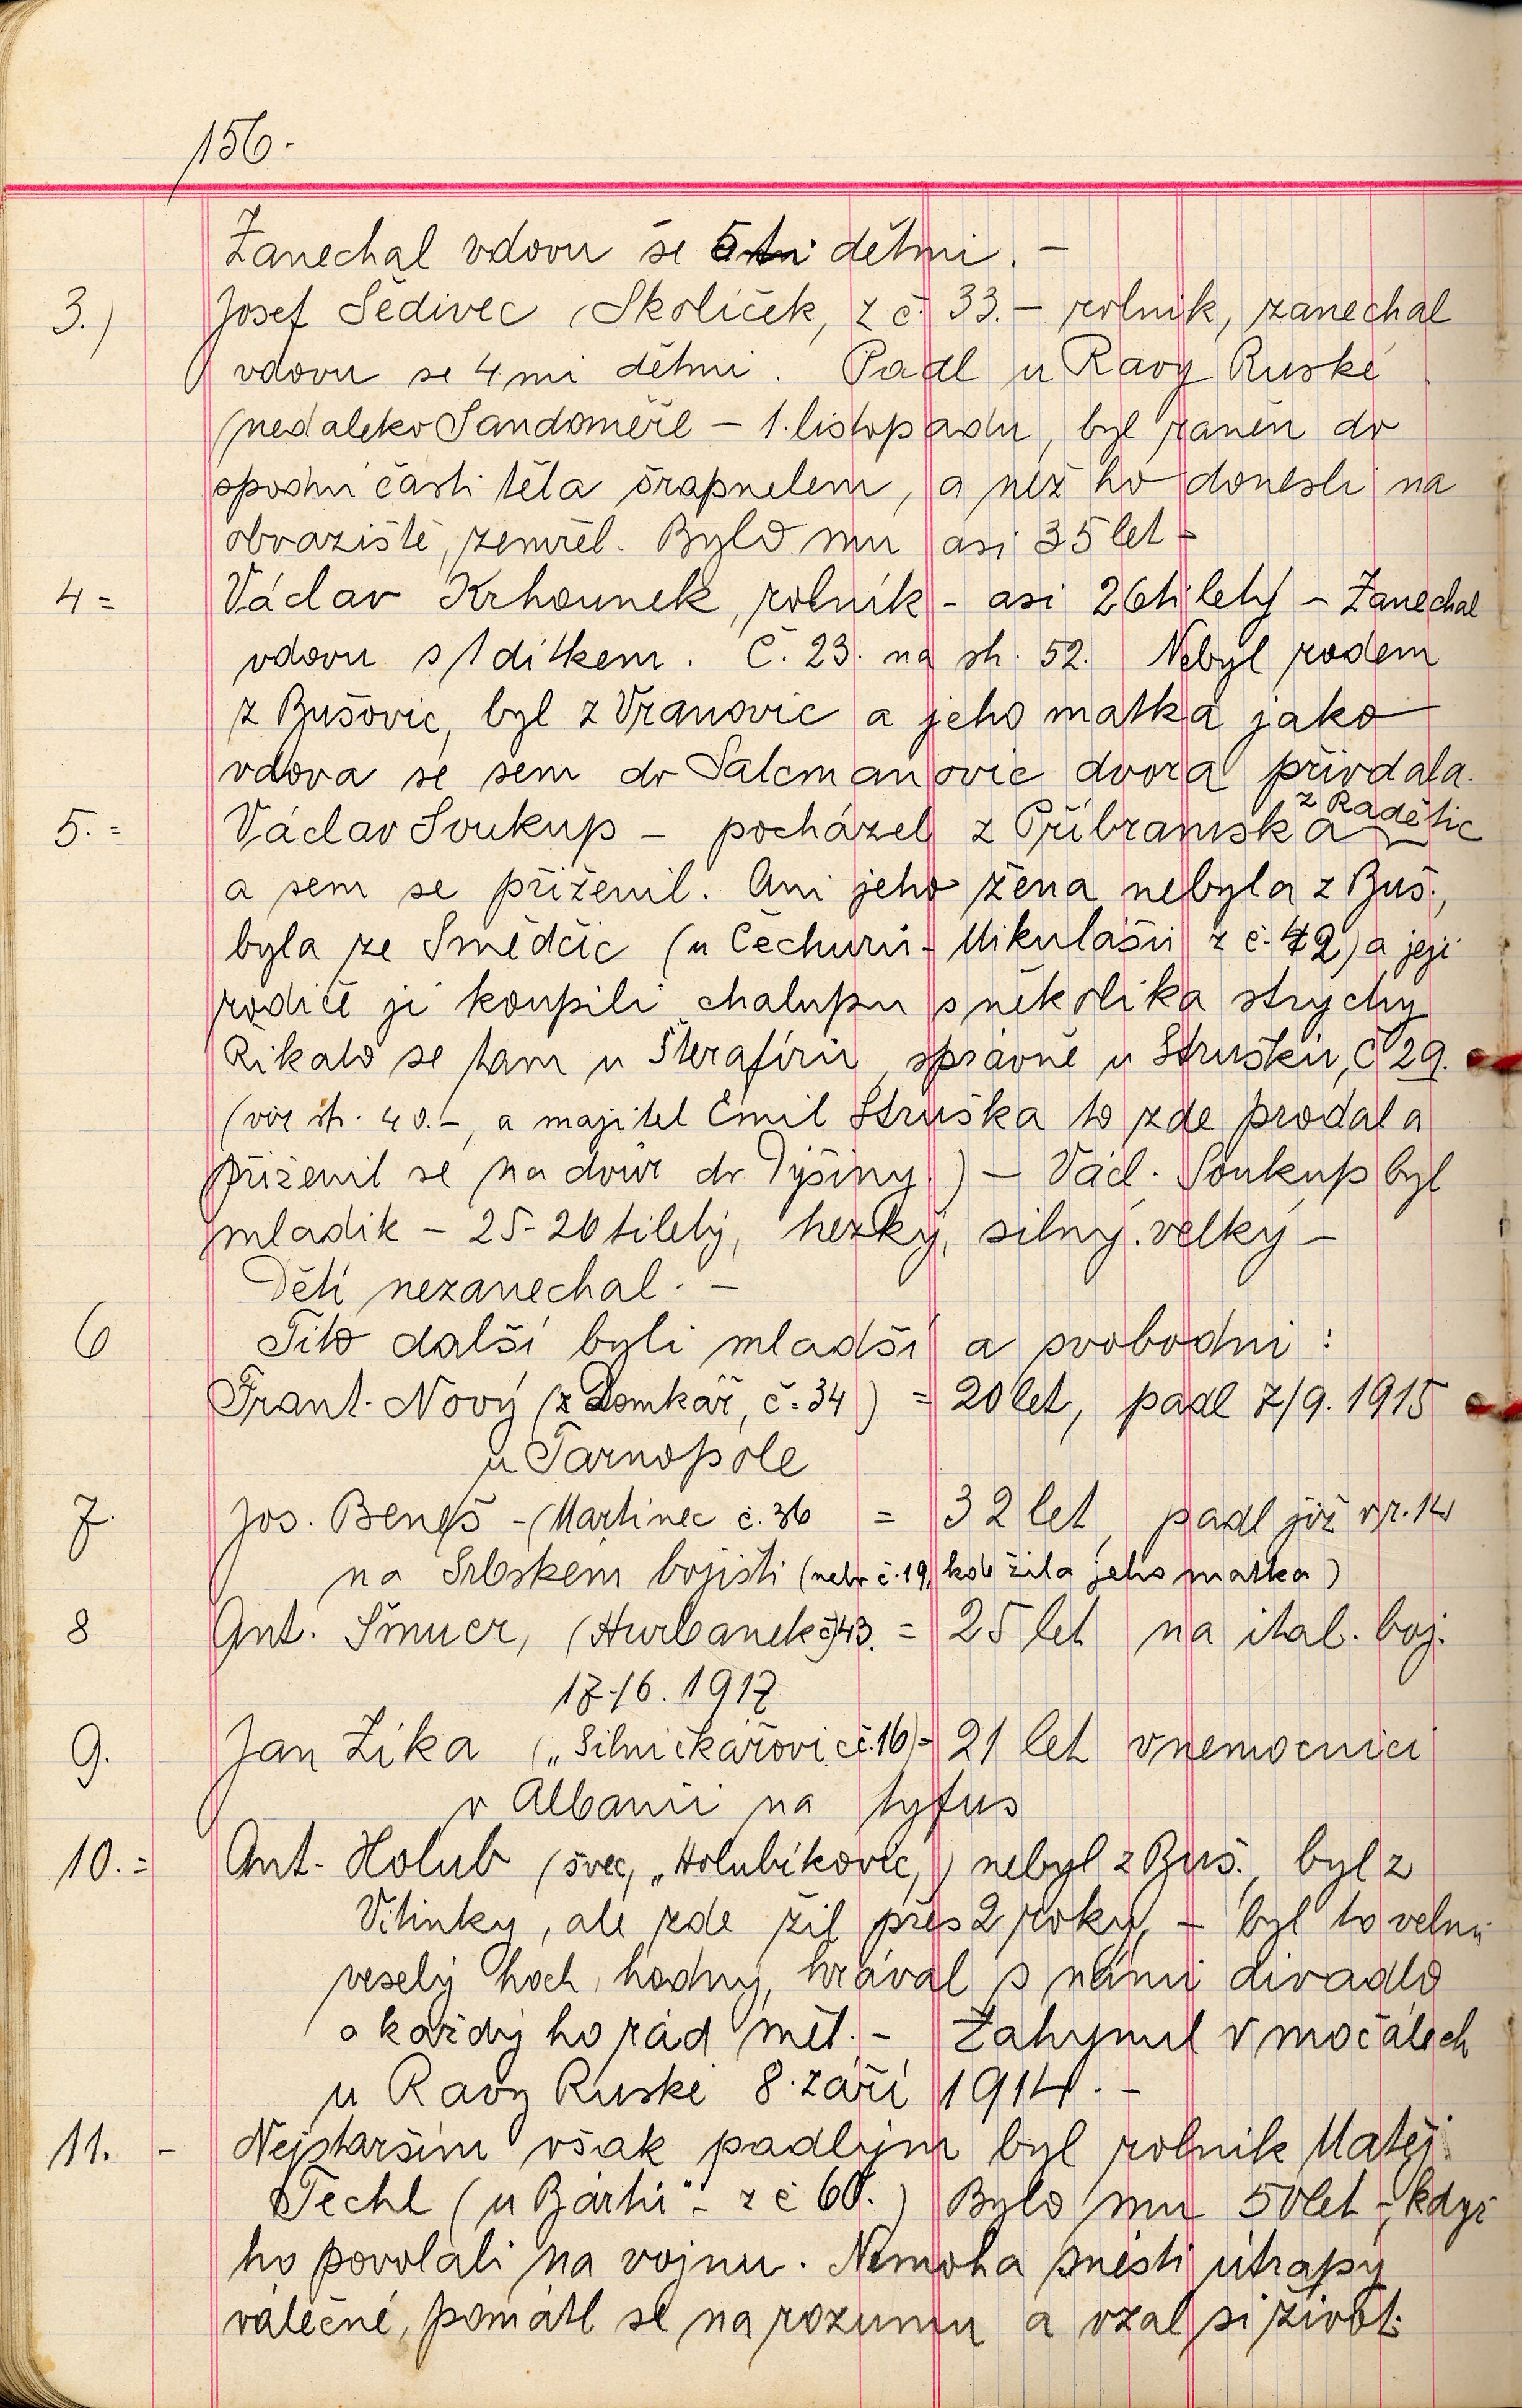 156.
Zanechal vdovu se 5ti dětmi. –
3.) Josef Šedivec, Skolíček, z č. 33. – rolník, zanechal
vdovu se 4mi dětmi. Padl u Ravy Ruské
(nedaleko Sandoměře – 1. listopadu, byl raněn do
spodní části těla šrapnelem, a než ho donesli na
obvaziště, zemřel. Bylo mu asi 35 let –
4 = Václav Krhounek, rolník – asi 26tiletý – Zanechal
vdovu s 1 dítkem. Č. 23. na str. 52. Nebyl rodem
z Bušovic, byl z Vranovic a jeho matka jako
vdova se sem do Salcmanovic dvora přivdala.
5. = Václav Soukup – pocházel z Příbramska z Radětic
a sem se přiženil. Ani jeho žena nebyla z Buš.,
byla ze Smědčic (u Čechurů – Mikulášů z č. 42) a její
rodiče jí koupili chalupu s několika strychy
Říkalo se tam u Šterafírů, správně u Strušků, č 29.
(viz str. 40. –, a majitel Emil Struška to zde prodal a
přiženil se na dvůr do Dýšiny.) – Václ. Soukup byl
mladík – 25-26tiletý, hezký, silný, velký –
Dětí nezanechal. –
6 Tito další byli mladší a svobodni:
Frant. Nový (z Domkář, č. 34) = 20 let, padl 7/9. 1915
u Tarnopole
7. Jos. Beneš – (Martinec č. 36 = 32 let, padl již v r. 14
na Srbském bojišti (nebo č. 19, kde žila jeho matka)
8 Ant. Šmucr, (Hurbanek č 43. = 25 let na ital. boj.
17./6. 1917
9. Jan Zíka („Silničkářovic č. 16) = 21 let v nemocnici
v Albanii na tyfus
10. = Ant. Holub (švec, „Holubíkovic„) nebyl z Buš., byl z
Vitinky, ale zde žil přes 2 roky, – byl to velmi
veselý hoch, hodný, hrával s námi divadlo
a každý ho rád měl. – Zahynul v močálech
u Ravy Ruské 8. září 1914. –
11. – Nejstarším však padlým byl rolník Matěj
Techl (u Bártů" – z č 60.) Bylo mu 50 let –, když
ho povolali na vojnu. Nemoha snésti útrapy
válečné, pomátl se na rozumu a vzal si život.